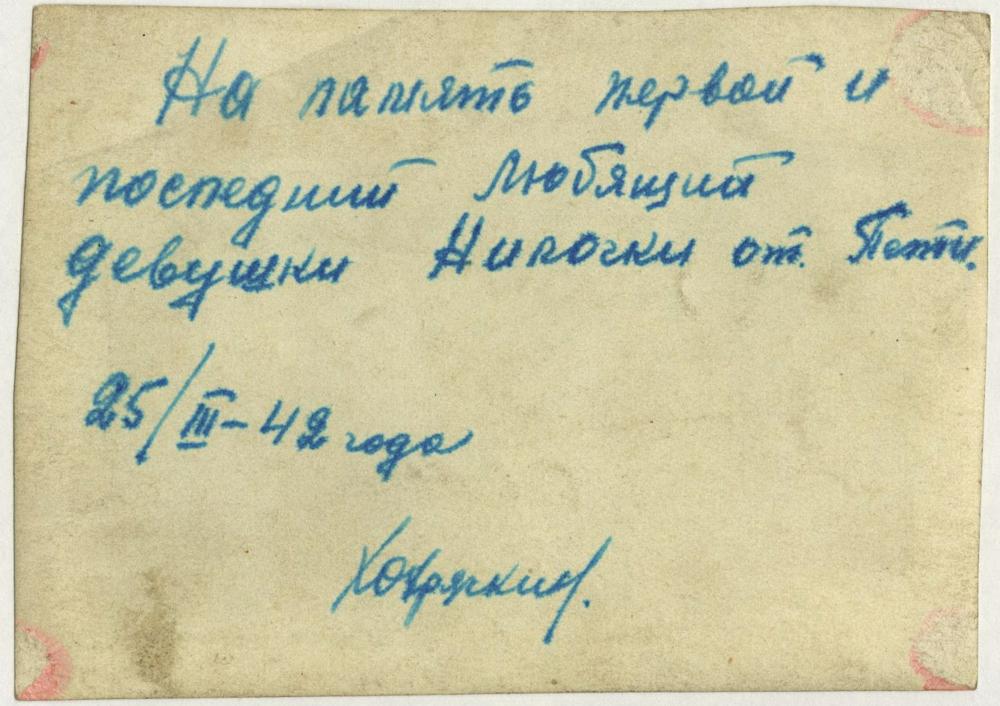 На память первой и
последний любящий
девушки Ниночки от. Пети.
25/III-42 года